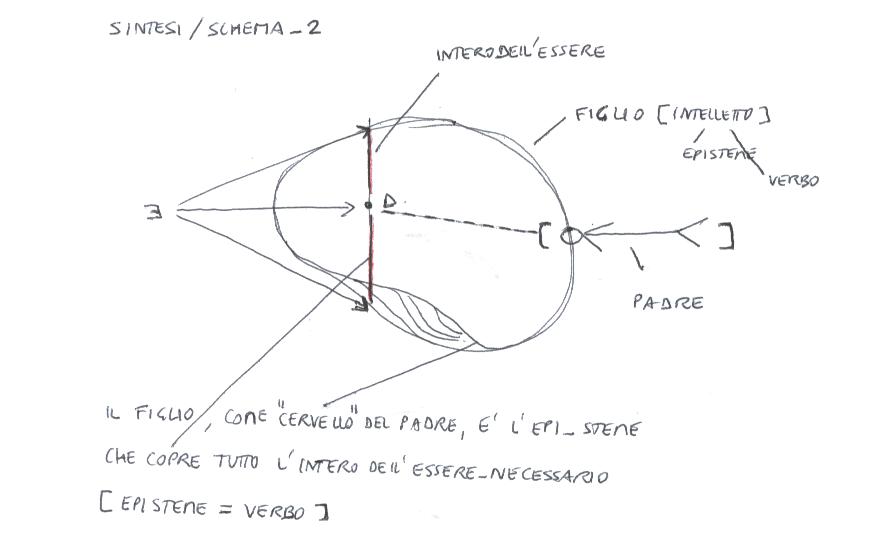 SINTESI / SCHEMA - 2
INTERO DELL'ESSERE
FIGLIO [INTELLETTO]
EPISTEME
VERBO
∃
D
[ ]
PADRE
IL FIGLIO, COME "CERVELLO" DEL PADRE, E' L'EPI_STEME
CHE COPRE TUTTO L'INTERO DELL'ESSERE_NECESSARIO
[EPISTEME = VERBO]